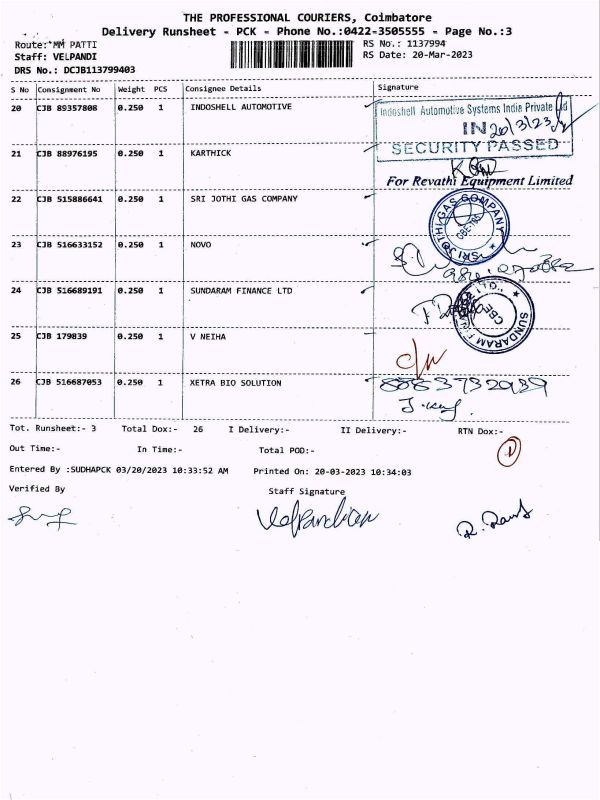 THE PROFESSIONAL COURIERS, Coimbatore
Delivery Runsheet - PCK - Phone No.:0422-3505555 - Page No.:3
Route:*MM PATTI
RS No.: 1137994
Staff: VELPANDI
RS Date: 20-Mar-2023
DRS No.: DCJB113799403
S No Consignment No Weight PCS Consignee Details Signature
20 CJB 89357808 0.250 1 INDOSHELL AUTOMOTIVE
Indoshell Automotive Systems India Private Ltd
IN 20/3/23
SECURITY PASSED
21 CJB 88976195 0.250 1 KARTHICK
For Revathi Equipment Limited
22 CJB 515886641 0.250 1 SRI JOTHI GAS COMPANY
SRI JOTHI GAS COMPANY
CBE
23 CJB 516633152 0.250 1 NOVO
24 CJB 516689191 0.250 1 SUNDARAM FINANCE LTD
SUNDARAM FINANCE LTD.,
CBE
25 CJB 179839 0.250 1 V NEIHA
26 CJB 516687053 0.250 1 XETRA BIO SOLUTION
Tot. Runsheet:- 3 Total Dox:- 26 I Delivery:- II Delivery:- RTN Dox:-
1
Out Time:- In Time:- Total POD:-
Entered By :SUDHAPCK 03/20/2023 10:33:52 AM Printed On: 20-03-2023 10:34:03
Verified By
Staff Signature
Velpandian